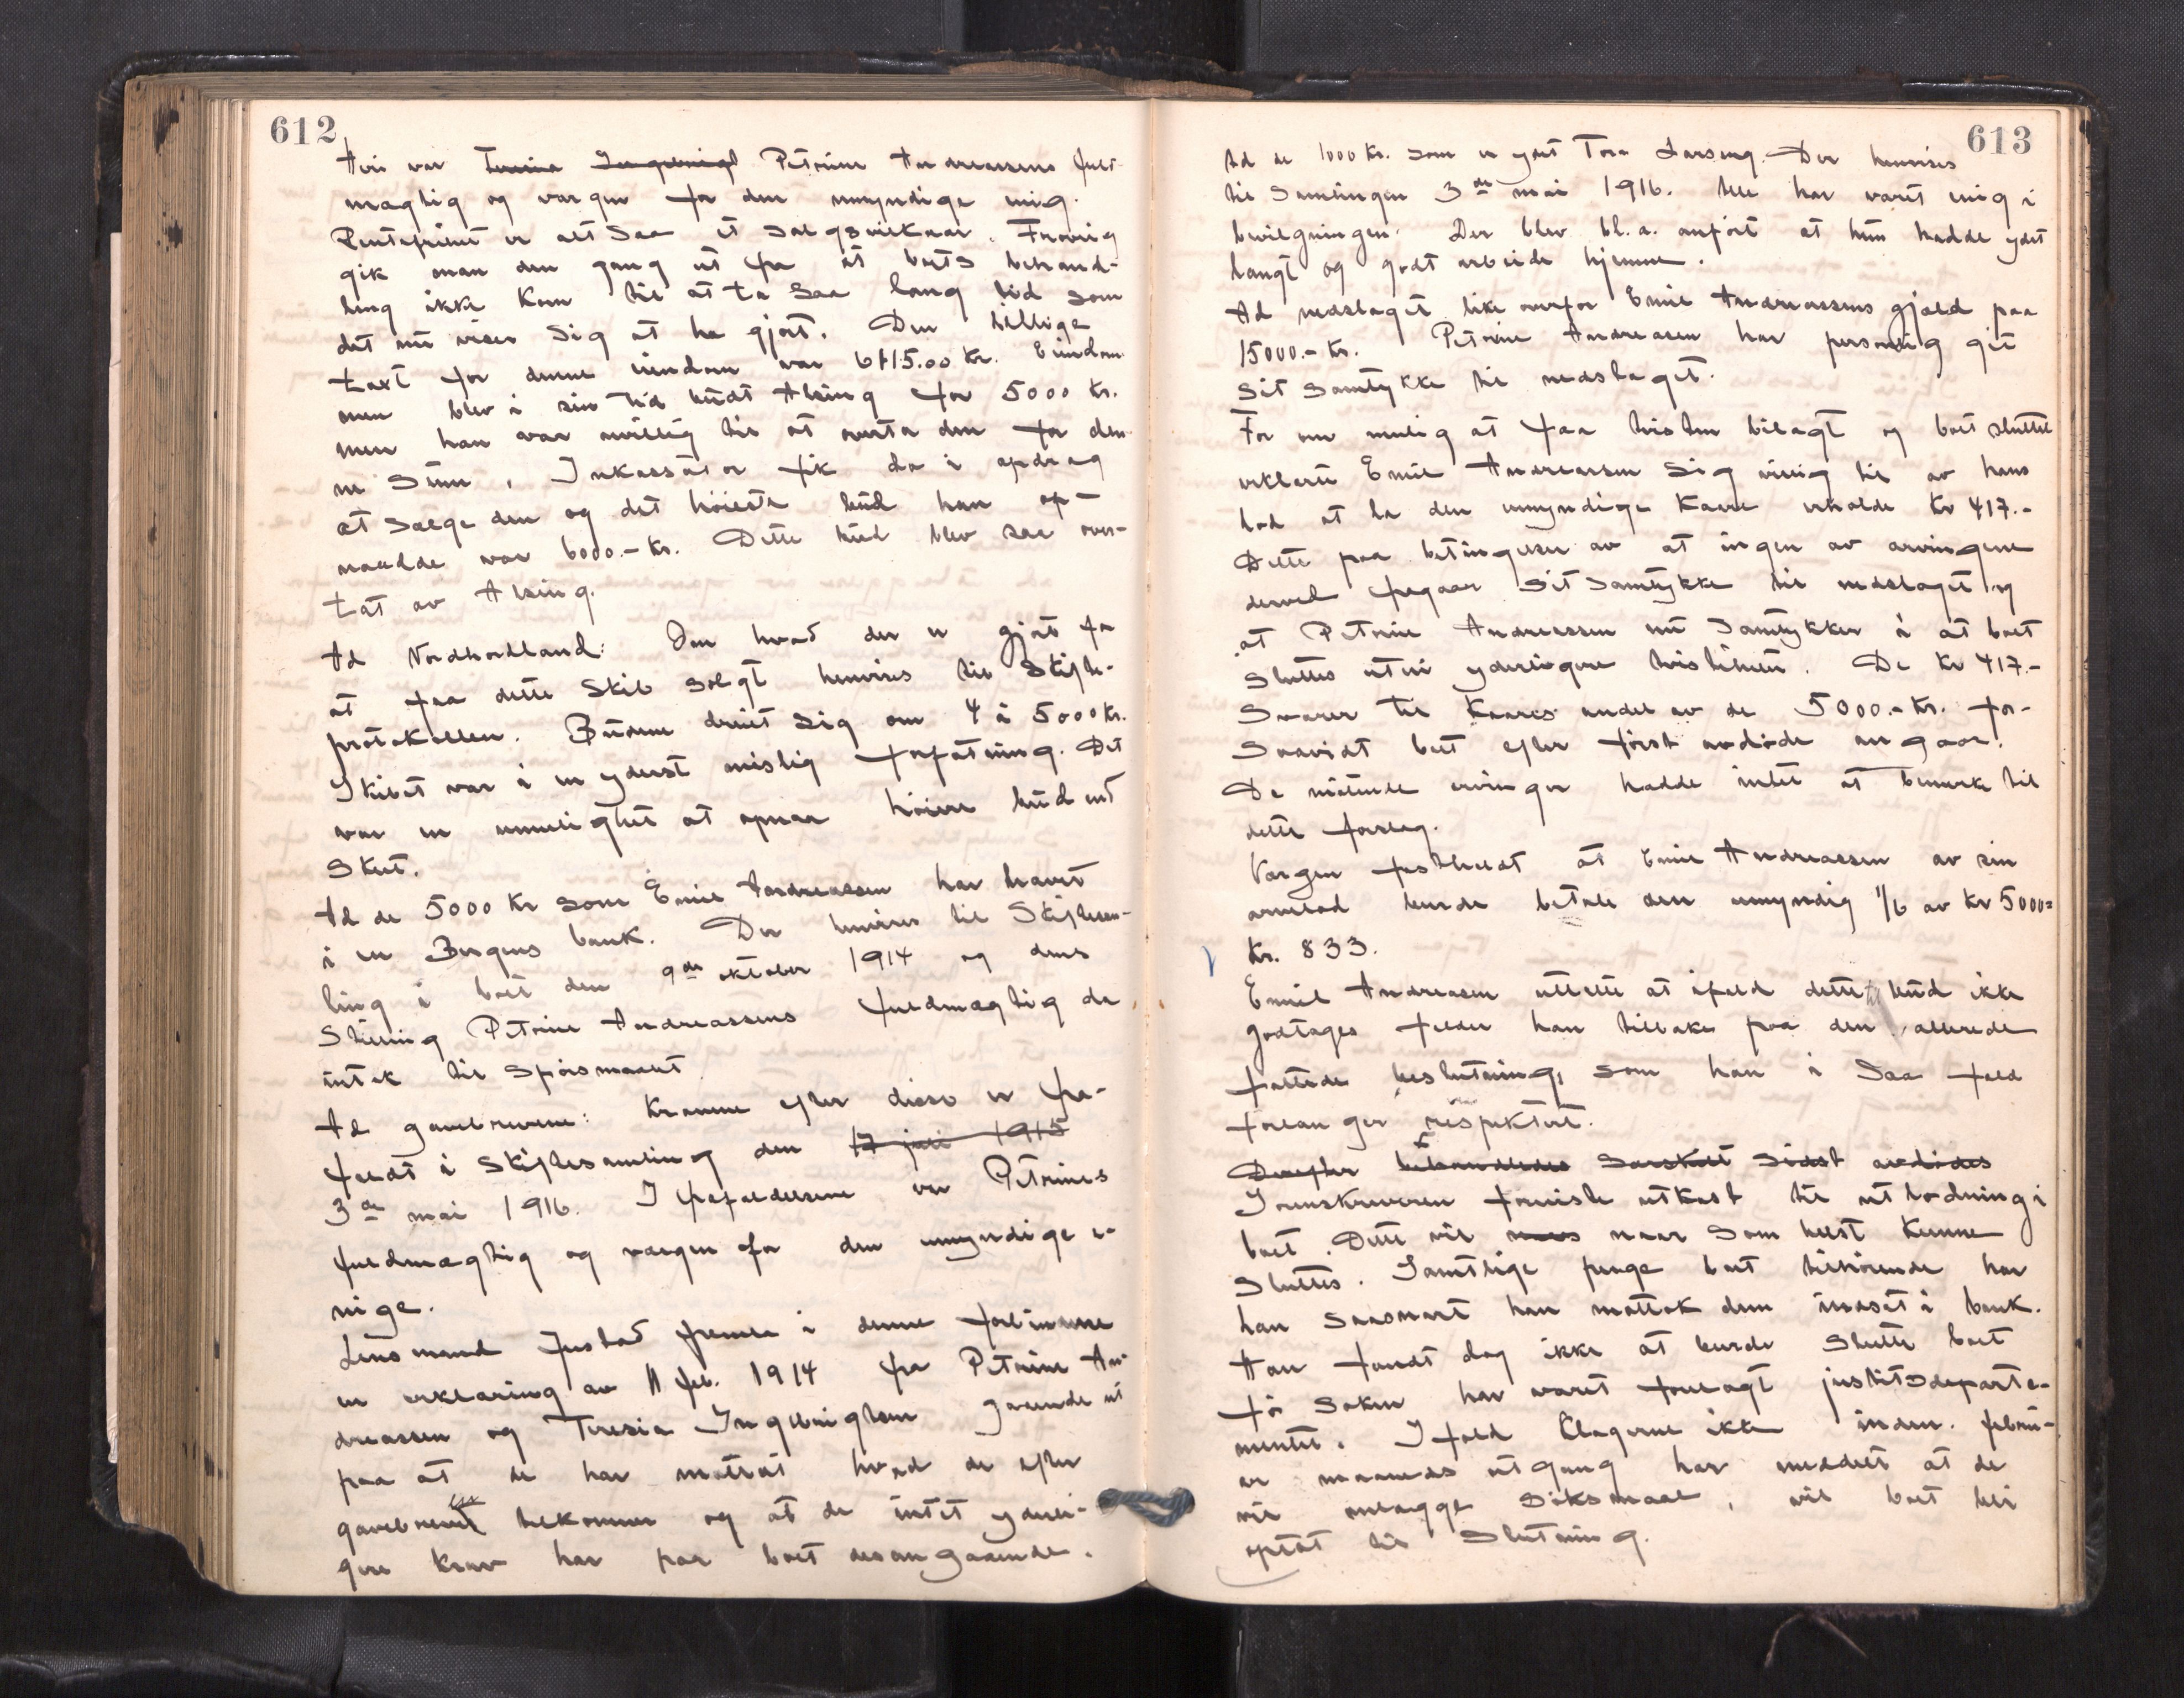 612
Heri var Teresia Ingebrigt Petrine Andreassens fuld-
mægtig og vergen for den umyndige enig.
Rentefriheten er altsaa et salgsvilkaar. Forøvrig
gik man den gang ut fra at boets behand-
ling ikke kom til at ta saa lang tid som
det nu viser sig at ha gjort. Den billige
takst for denne eiendom var 6415.00 kr. Eiendom-
men blev i sin tid budt Alsing for 5000 kr.
men han var uvillig til at overta den for den-
ne sum. Inkassator fik da i opdrag
at sælge den og det høieste bud han op-
naadde var 6000.- kr. Dette bud blev saa over-
tat av Alsing.
Ad Nordhordland: Om hvad der er gjort for
at faa dette skib solgt henvises til skifte-
protokollen. Budene dreiet sig om 4 à 5000 kr.
Skibet var i en yderst mislig forfatning. Det
var en umulighet at opnaa høiere bud end
skeet.
Ad de 5000 kr som Emil Andreassen har hævet
i en Bergens bank. Der henvises til skiftesam-
ling i boet den 9de oktober 1914 og dens
stilling Petrine Andreassens fuldmægtig da
indtok til spørsmaalet.
Ad gavebrevene: Kravene efter disse er fra-
faldt i skiftesamling den 17 juli 1915
3de mai 1916. I frafaldelsene var Petrines
fuldmægtig og vergen for den umyndige e-
nige.
Lensmand Justad fremla i denne forbindelse
en erklæring av 11 feb. 1914 fra Petrine An-
dreassen og Teresia Ingebrigtsen gaaende ut
paa at de har mottat hvad de efter
gavebrevet tilkommer og at de intet yderli-
gere krav har paa boet desangaaende.
613
Ad de 1000 kr. som er ydet Tora Larseng. Der henvises
til samlingen 3de mai 1916. Alle har været enig i
bevilgningen. Der blev bl.a. anført at hun hadde ydet
langt og godt arbeide hjemme.
Ad nedslaget like overfor Emil Andreassens gjæld paa
15000.- kr. Petrine Andreasen har personlig git
sit samtykke til nedslaget.
For om mulig at faa tvisten bilagt og boet sluttet
erklærte Emil Andreassen sig villig til av hans
lod at la den umyndige Kaare erholde kr 417.-
Dette paa betingelse av at ingen av arvingene
derved fragaar sit samtykke til nedslaget og
at Petrine Andreassen nu samtykker i at boet
sluttes uten yderligere tvistigheter. De kr 417.-
svarer til Kaares andel av de 5000.- kr. for-
saavidt boet efter først avdøde angaar.
De møtende arvinger hadde intet at bemerke til
dette forslag.
Vergen fastholdt at Emil Andreassen av sin
arvelod burde betale den umyndig 1/6 av kr 5000=
kr. 833.
Emil Andreasen uttalte at ifald dette bud ikke
godtages falder han tilbake paa den allerede
fattede beslutning, som han i saa fald
forlanger respektert.
Derefter behandledes særskilt sidst avdødes
Sorenskriveren foreviste utkast til utlodning i
boet. Dette vil naar som helst kunne
sluttes. Samtlige penge boet tilhørende har
han saasnart han mottok dem indsat i bank.
Han fandt dog ikke at burde slutte boet
før saken har været forelagt justitsdeparte-
mentet. Ifald klagerne ikke inden februa-
ar maaneds utgang har meddelt at de
vil anlægge søksmaal, vil boet bli
optat til slutning.